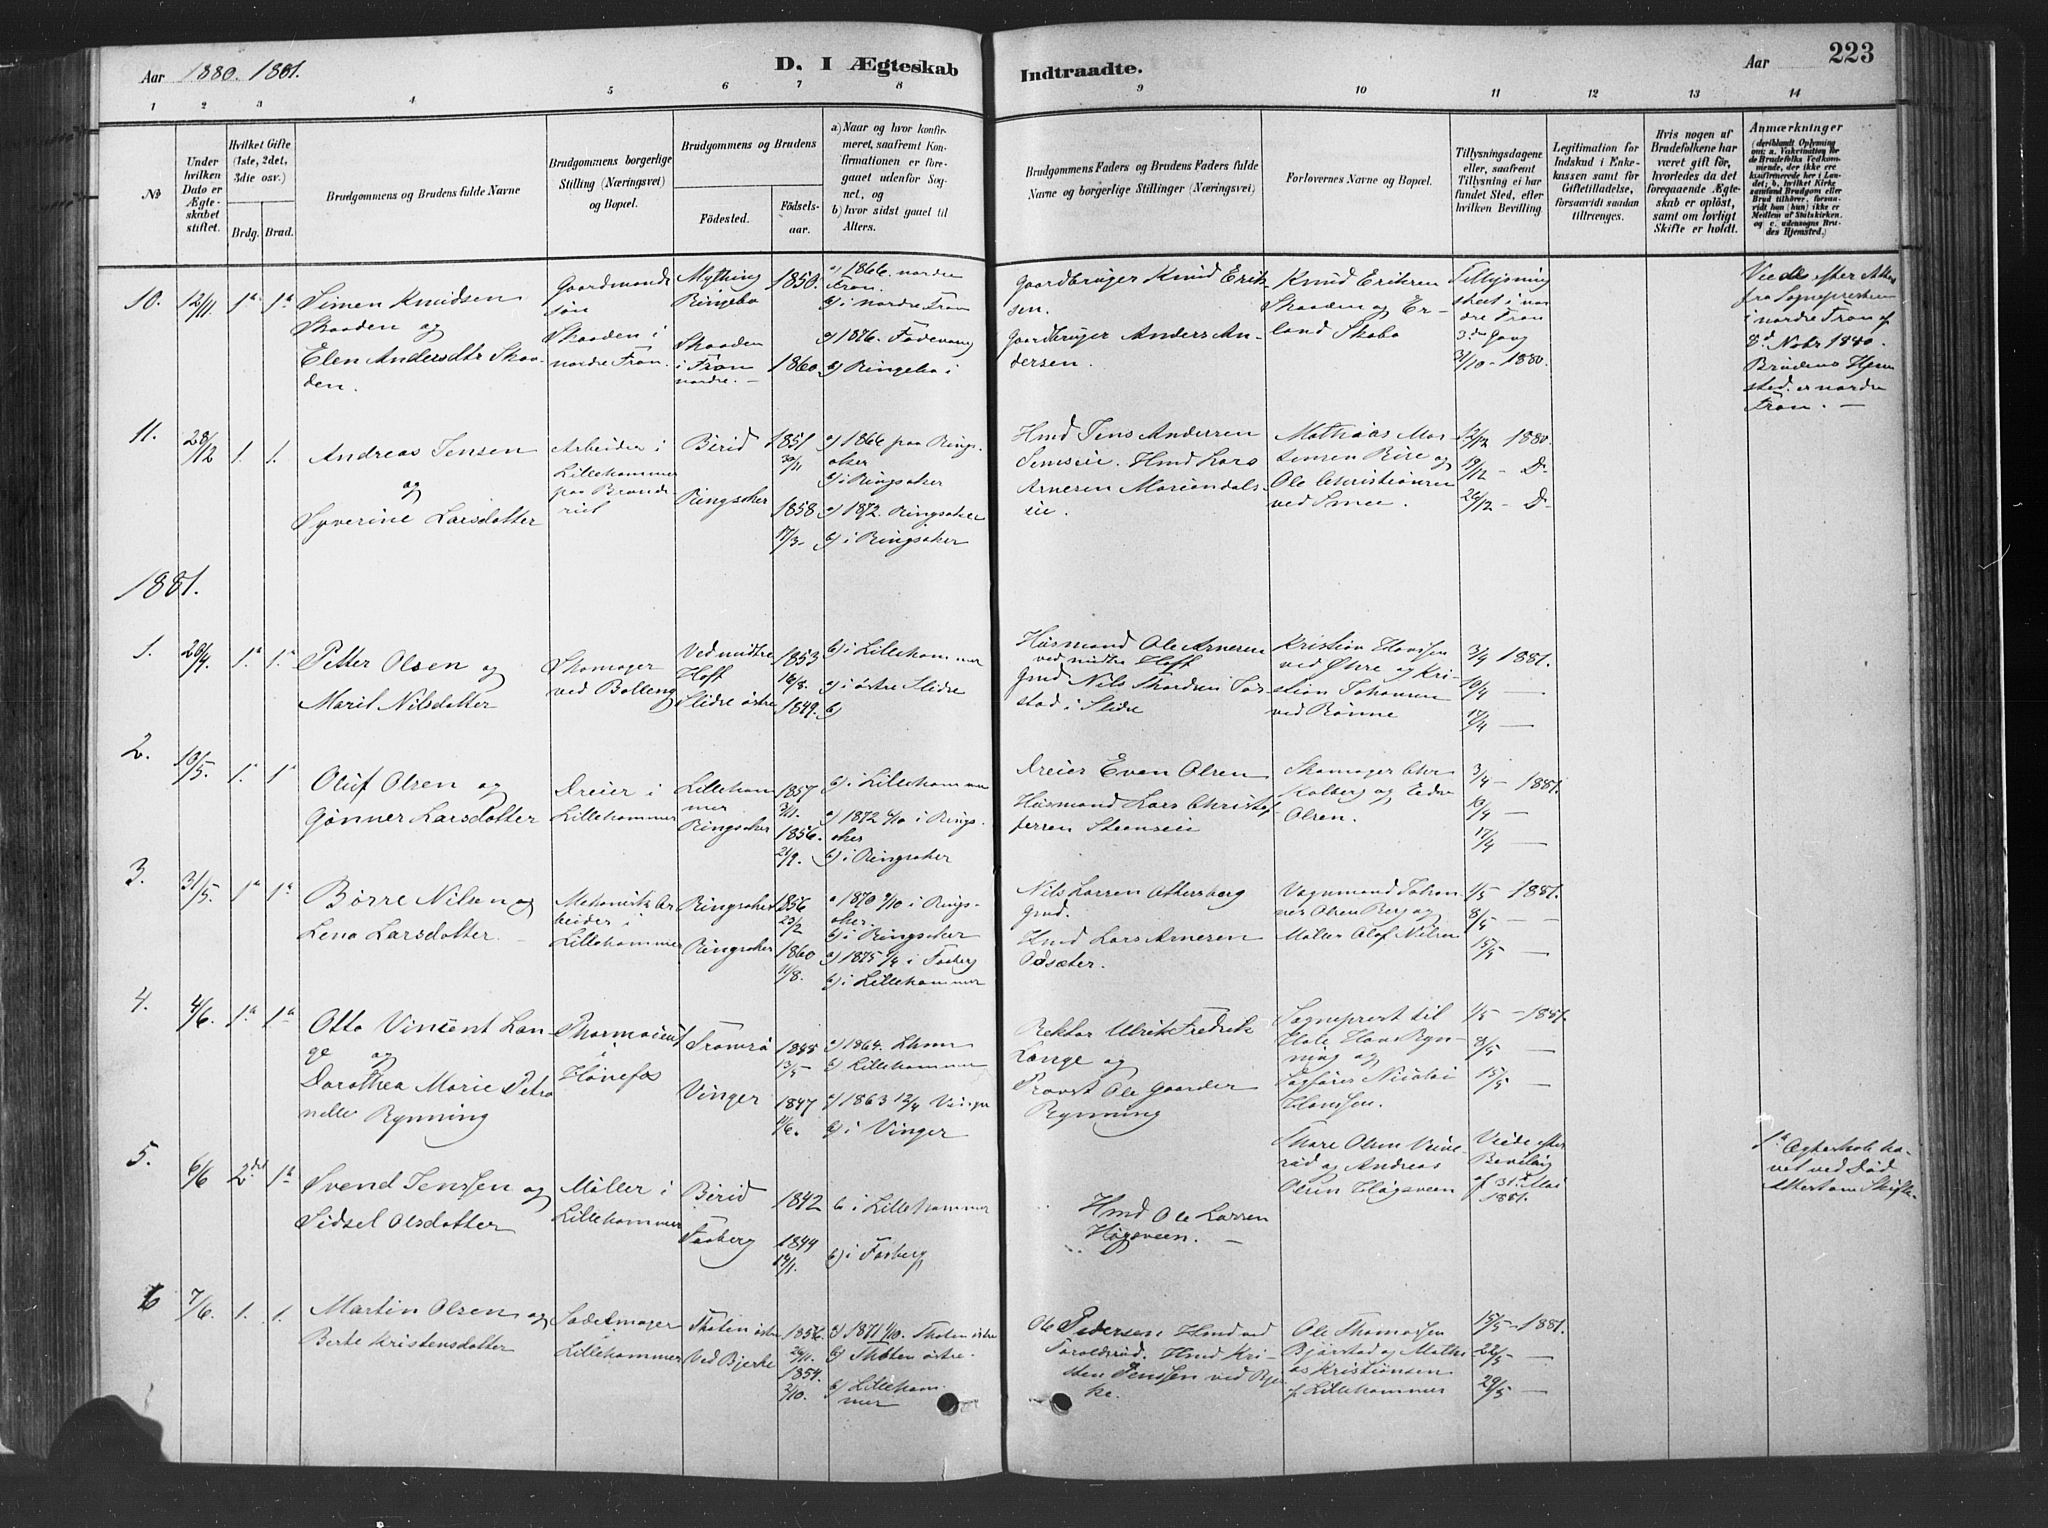 Aar 1880. 1881.
D. I Ægteskab
Indtraadte.
Aar
223
1 2 3 4 5 6 7 8 9 10 11 12 13 14
No
Under hvilken Dato er Ægteskabet stiftet.
Hvilket Gifte (1ste, 2det, 3die osv.)
Brdg. Brud.
Brudgommens og Brudens fulde Navne
Brudgommens borgerlige Stilling (Næringsvei) og Bopæl.
Brudgommens og Brudens
Födested.
Födselsaar.
a) Naar og hvor konfirmeret, saafremt Konfirmationen er foregaaet udenfor Sognet, og
b) hvor sidst gaaet til Alters.
Brudgommens Faders og Brudens Faders fulde Navne og borgerlige Stillinger (Næringsvei)
Forlovernes Navne og Bopæl.
Tillysningsdagene eller, saafremt Tillysning ei har fundet Sted, efter hvilken Bevilling
Legitimation for Indskud i Enkekassen samt for Giftetilladelse, forsaavidt saadan tiltrænges.
Hvis nogen af Brudefolkene har været gift för, hvorledes da det foregaaende Ægteskab er oplöst, samt om lovligt Skifte er holdt.
Anmærkninger
(deriblandt Oplysning om: a. Vakcination for de Brudefolks Vedkommende, der ikke ere konfirmerede her i Landet; b. hvilket Kirkesamfund Brudgom eller Brud tilhörer, forsaavidt han (hun) ikke er Medlem af Statskirken, og c. udensogns Brudes Hjemsted.)
10. 12/11 1a 1a
Simen Knudsen
Skaaden og
Elen Andersdtr Skaaden.
Gaardmandssön
Skaaden i
nordre Fron.
Mything
Ringebo
Skaaden
i Fron
nordre. —
1850.
1860.
a) 1866. nordre
Fron.
b) i nordre Fron
a) 1876. Fodevang
b) Ringebo i
Gaardbruger Knud Eriksen.
Gaardbruger Anders Andersen.
Knud Eriksen
Skaaden og Erland Skabo
Tillysning
skeet i nordre Fron
3de Gang
31/10 - 1880.
Viede efter Attest
fra Sognepresten
i nordre Fron af
8d Nobr 1880.
Brudens Hjemsted er nordre
Fron. —
11. 28/12 1. 1.
Andreas Jensen
og
Syverine Larsdatter
Arbeider i
Lillehammer
paa Brandrud
Birid
Ringsaker
1851
30/11
1858
17/3
a) 1866 paa Ringsaker
b) i Ringsaker
a) 1872. Ringsaker
b) i Ringsaker
Hmd Jens Andersen
Hmd Lars
Arnesen
Ole Christiansen
12/12 1880.
19/12 - D-
26/12 - D-
1881.
1. 28/4 1.a 1.a
Petter Olsen og
Marit Nilsdatter
Skomager
ved Balleng
Ved midtre
Hoft
Slidre östre
1853
16/8.
1849.
b) i Lillehammer
a) i östre Slidre
b)
Husmand Ole Arnesen
ved midtre Hoft
Gmd Nils
stad i Slidre
Kristian Hanssen
ved Öhre og Kristian Johansen
ved Rönne
3/4 1881.
10/4 —
17/4 —
2. 10/5. 1.a 1a
Oluf Olsen og
Gönner Larsdatter
Dreier i
Lillehammer
Lillehammer
Ringsaker
1857
3/11.
1856.
21/9.
b) i Lillehammer
a) 1872 6/10 i Ringsaker
b) i Ringsaker
Dreier Even Olsen
Husmand Lars Christoffersen
Skomager Chr
Kolberg og
Olsen.
3/4 - 1881.
10/4 —
17/4 —
3. 31/5. 1a 1a
Börre Nilsen og
Lena Larsdatter.
Mekanisk Arbeider i
Lillehammer
Ringsaker
Ringsaker
1856
25/2
1860
11/8.
a) 1870 9/10 i Ringsaker.
b) i Ringsaker
a) 1875 i Faaberg
b) i Lillehammer
Nils Larsen
Gmd.
Hmd Lars Arnesen
Odsæter.
Vognmand Johannes Olsen Berg og
Möller Olof Nilsen
1/5 - 1881.
8/5 —
15/5 —
4. 4/6. 1.a 1a
Otto Vincent Lange og
Dorothea Marie Petronelle Rynning
i
Hönefos
Tromsö
Vinger
1848
13/5
1847
11/6.
a) 1864. Lham
b) Lillehammer
a) 1863 12/4 Vinger
b) i Vinger
Rektor Ulrik Fredrik
Lange og
Provst Ole Gaarder
Rynning
Sogneprest til
Hole Hans Rynning og
Sagförer Nicolai
Hanssen.
1/5 - 1881.
8/5 —
15/5 —
5. 6/6 2.det 1a
Svend Jenssen og
Sidsel Olsdatter
Möller i
Lillehammer
Birid
Faaberg
1842
1844
14/1.
b) i Lillehammer
b) i Faaberg
Hmd Ole Larsen
Högsveen. —
Olsen
og Andreas
Olsen Högsveen
Viede efter
Bevilling
af 31t Mai
1881.
1a Ægteskab hævet ved Död
Attest om Skifte.
6 7/6. 1. 1.
Martin Olsen og
Berte Kristensdatter
Sadelmager
Lillehammer
Thoten östre
Ved Bjerke
1856.
26/11.
1854.
2/10.
a) 1871 1/10. Thoten östre
b) Thoten östre.
b) Lillehammer
Ole Pedersen Hmd ved
Hmd Kristen Jenssen ved Bjerke.
Ole Thomassen
Björstad og Mathias Kristiansen
af Lillehammer
15/5 - 1881.
22/5 —
29/5 —